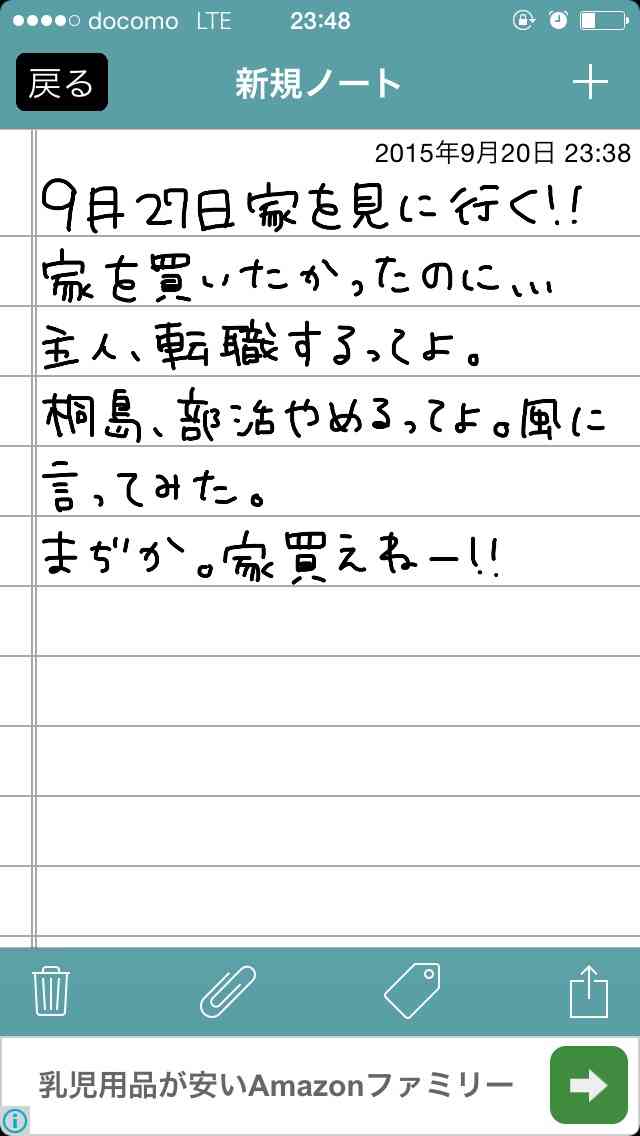 docomo LTE 23:48
戻る 新規ノート
2015年9月20日 23:38
9月27日家を見に行く!!
家を買いたかったのに、、、
主人、転職するってよ。
桐島、部活やめるってよ。風に
言ってみた。
まぢか。家買えねー!!
乳児用品が安いAmazonファミリー